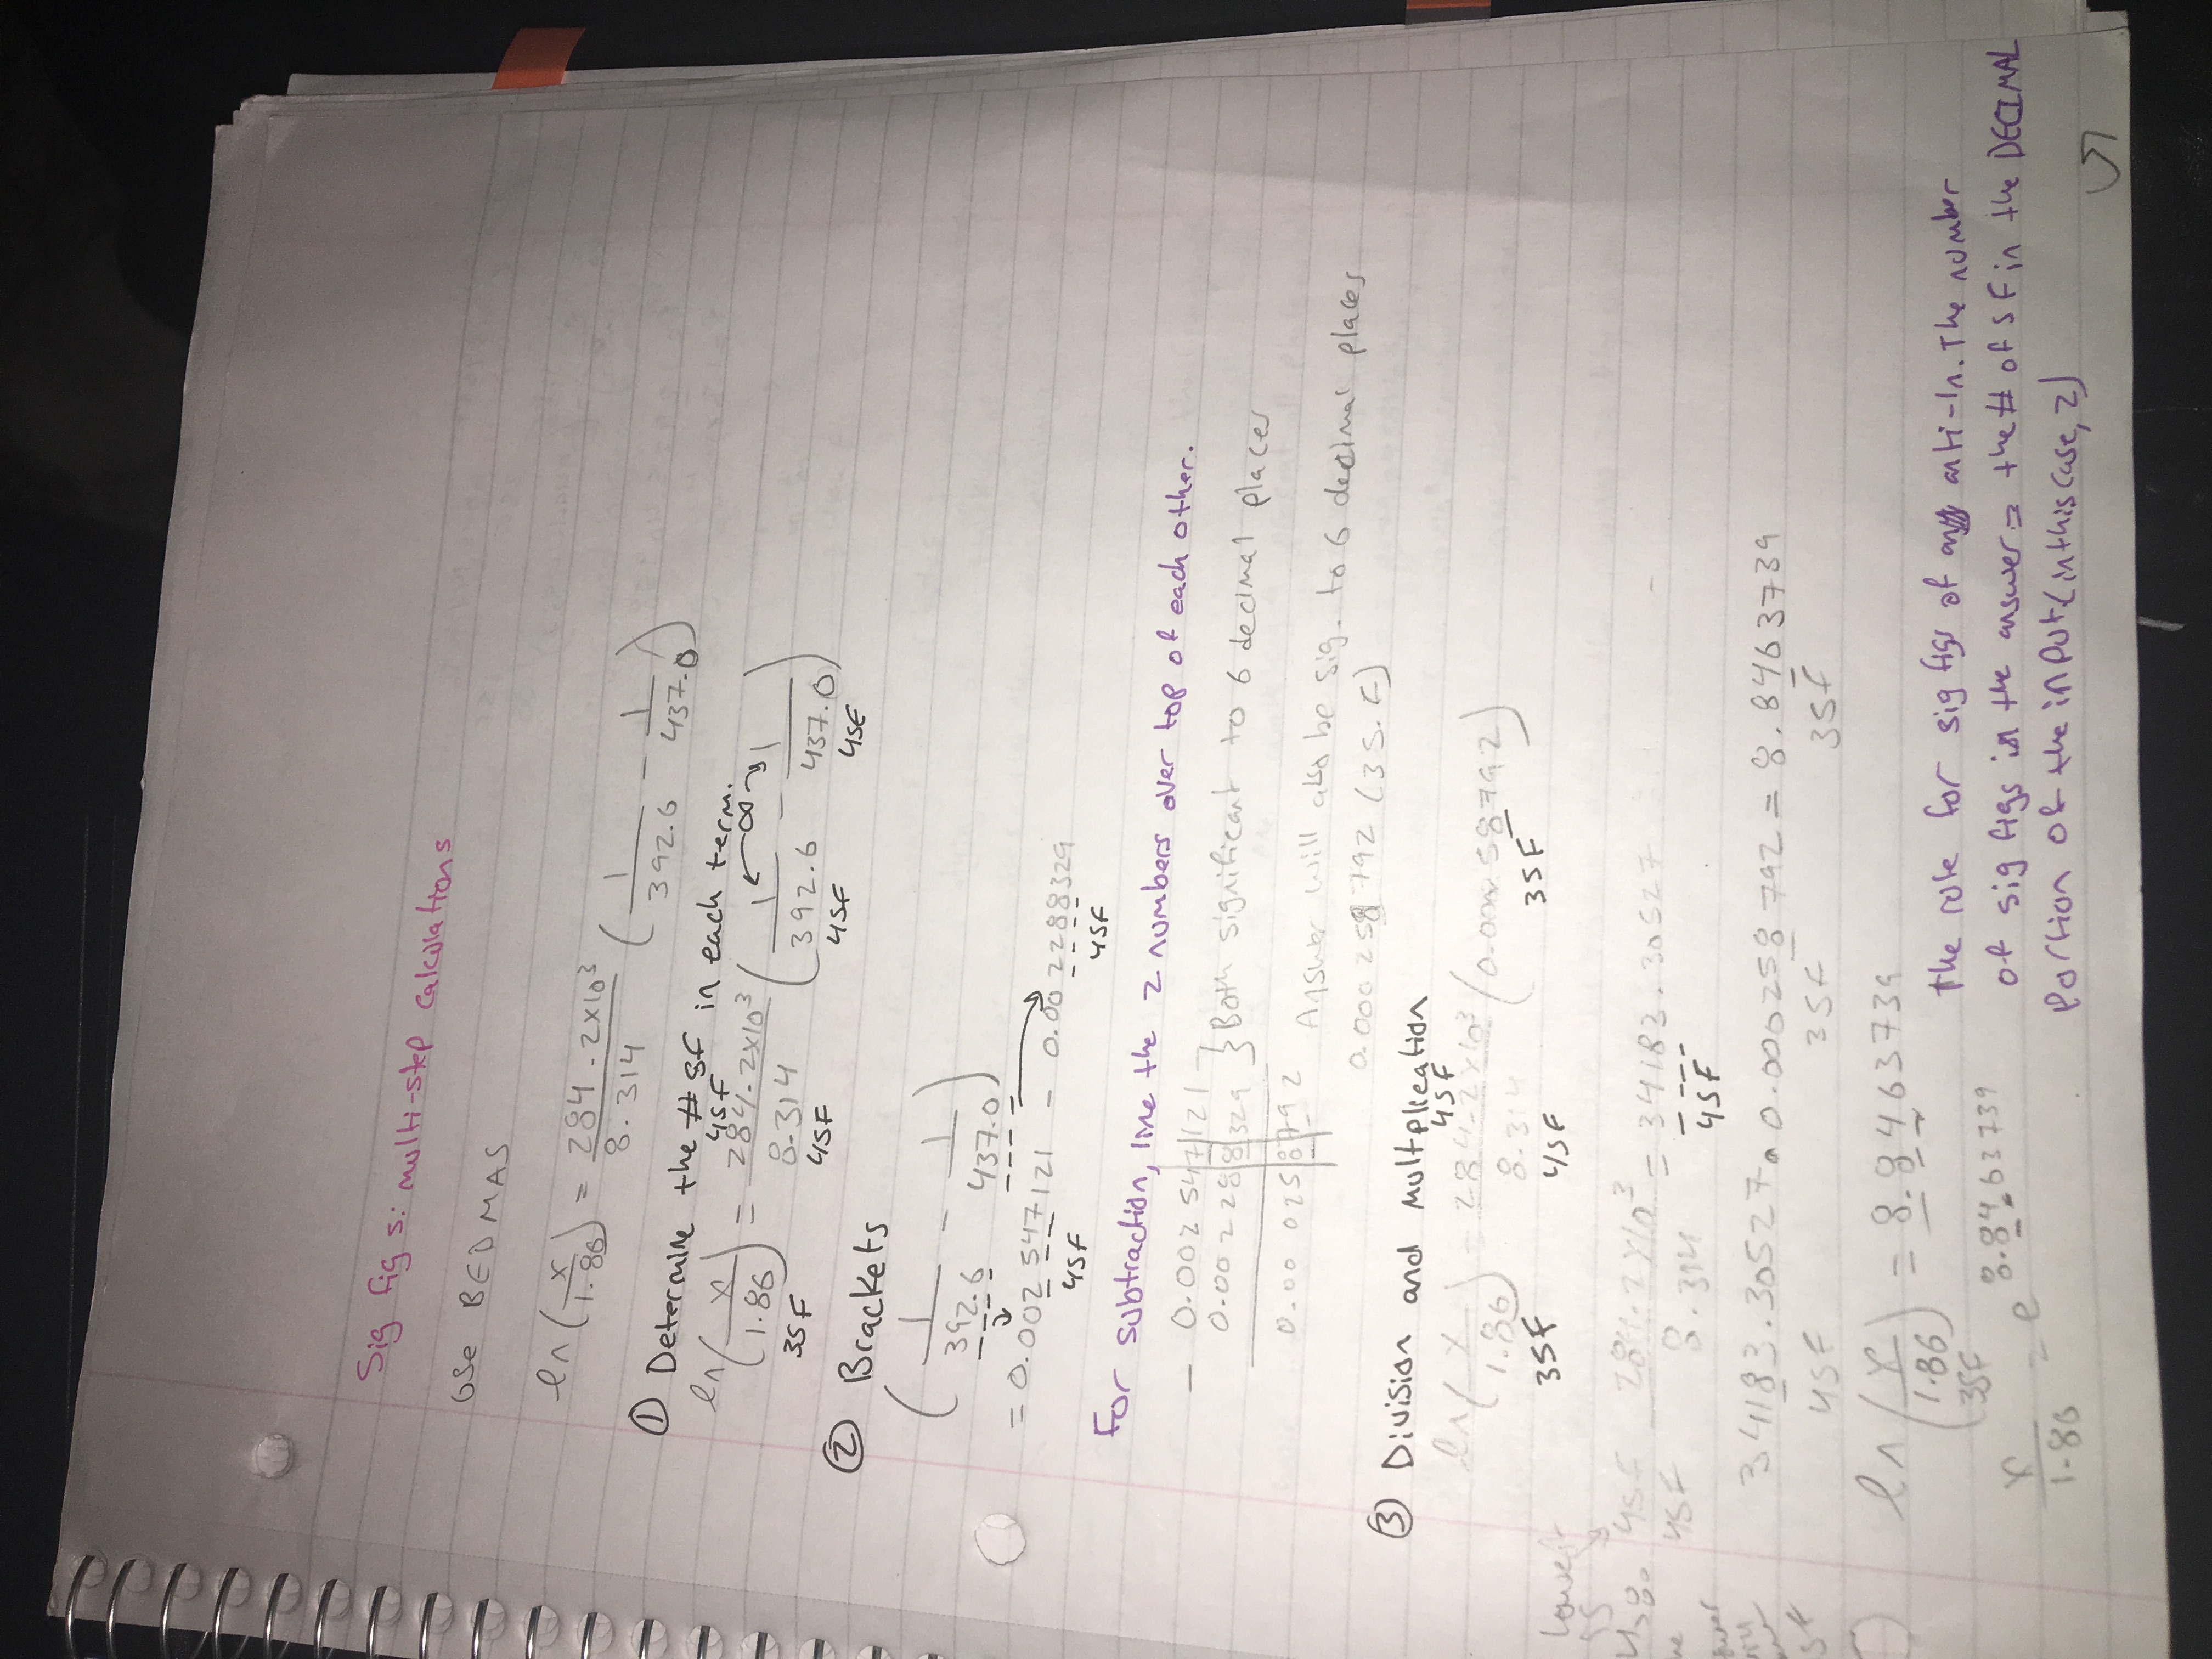 Sig figs: multi-step calculations
Use BEDMAS
ln(x/1.86) = 284.2x10³/8.314 (1/392.6 - 1/437.0)
① Determine the # SF in each term.
4SF ∞
ln(x/1.86) = 284.2x10³/8.314 (1/392.6 - 1/437.0)
3SF 4SF 4SF 4SF
② Brackets
(1/392.6 - 1/437.0)
= 0.002547121 - 0.002288329
4SF 4SF
For subtraction, line the 2 numbers over top of each other.
- 0.002547121
0.002288329 } Both significant to 6 decimal places
0.000258792 Answer will also be sig. to 6 decimal places
0.000258792 (3 S.F)
③ Division and multplication
4SF
ln(x/1.86) = 284.2x10³/8.314 (0.000258792)
3SF 4SF 3SF
Lowest
4SF 284.2x10³/8.314 = 34183.30527
4SF 4SF
34183.30527 • 0.000258792 = 8.8463739
4SF 3SF 3SF
ln(x/1.86) = 8.8463739
3SF
x/1.86 = e^8.8463739
The rule for sig figs of anti-ln. The number
of sig figs in the answer = the # of SF in the DECIMAL
portion of the input (in this case, 2)
5